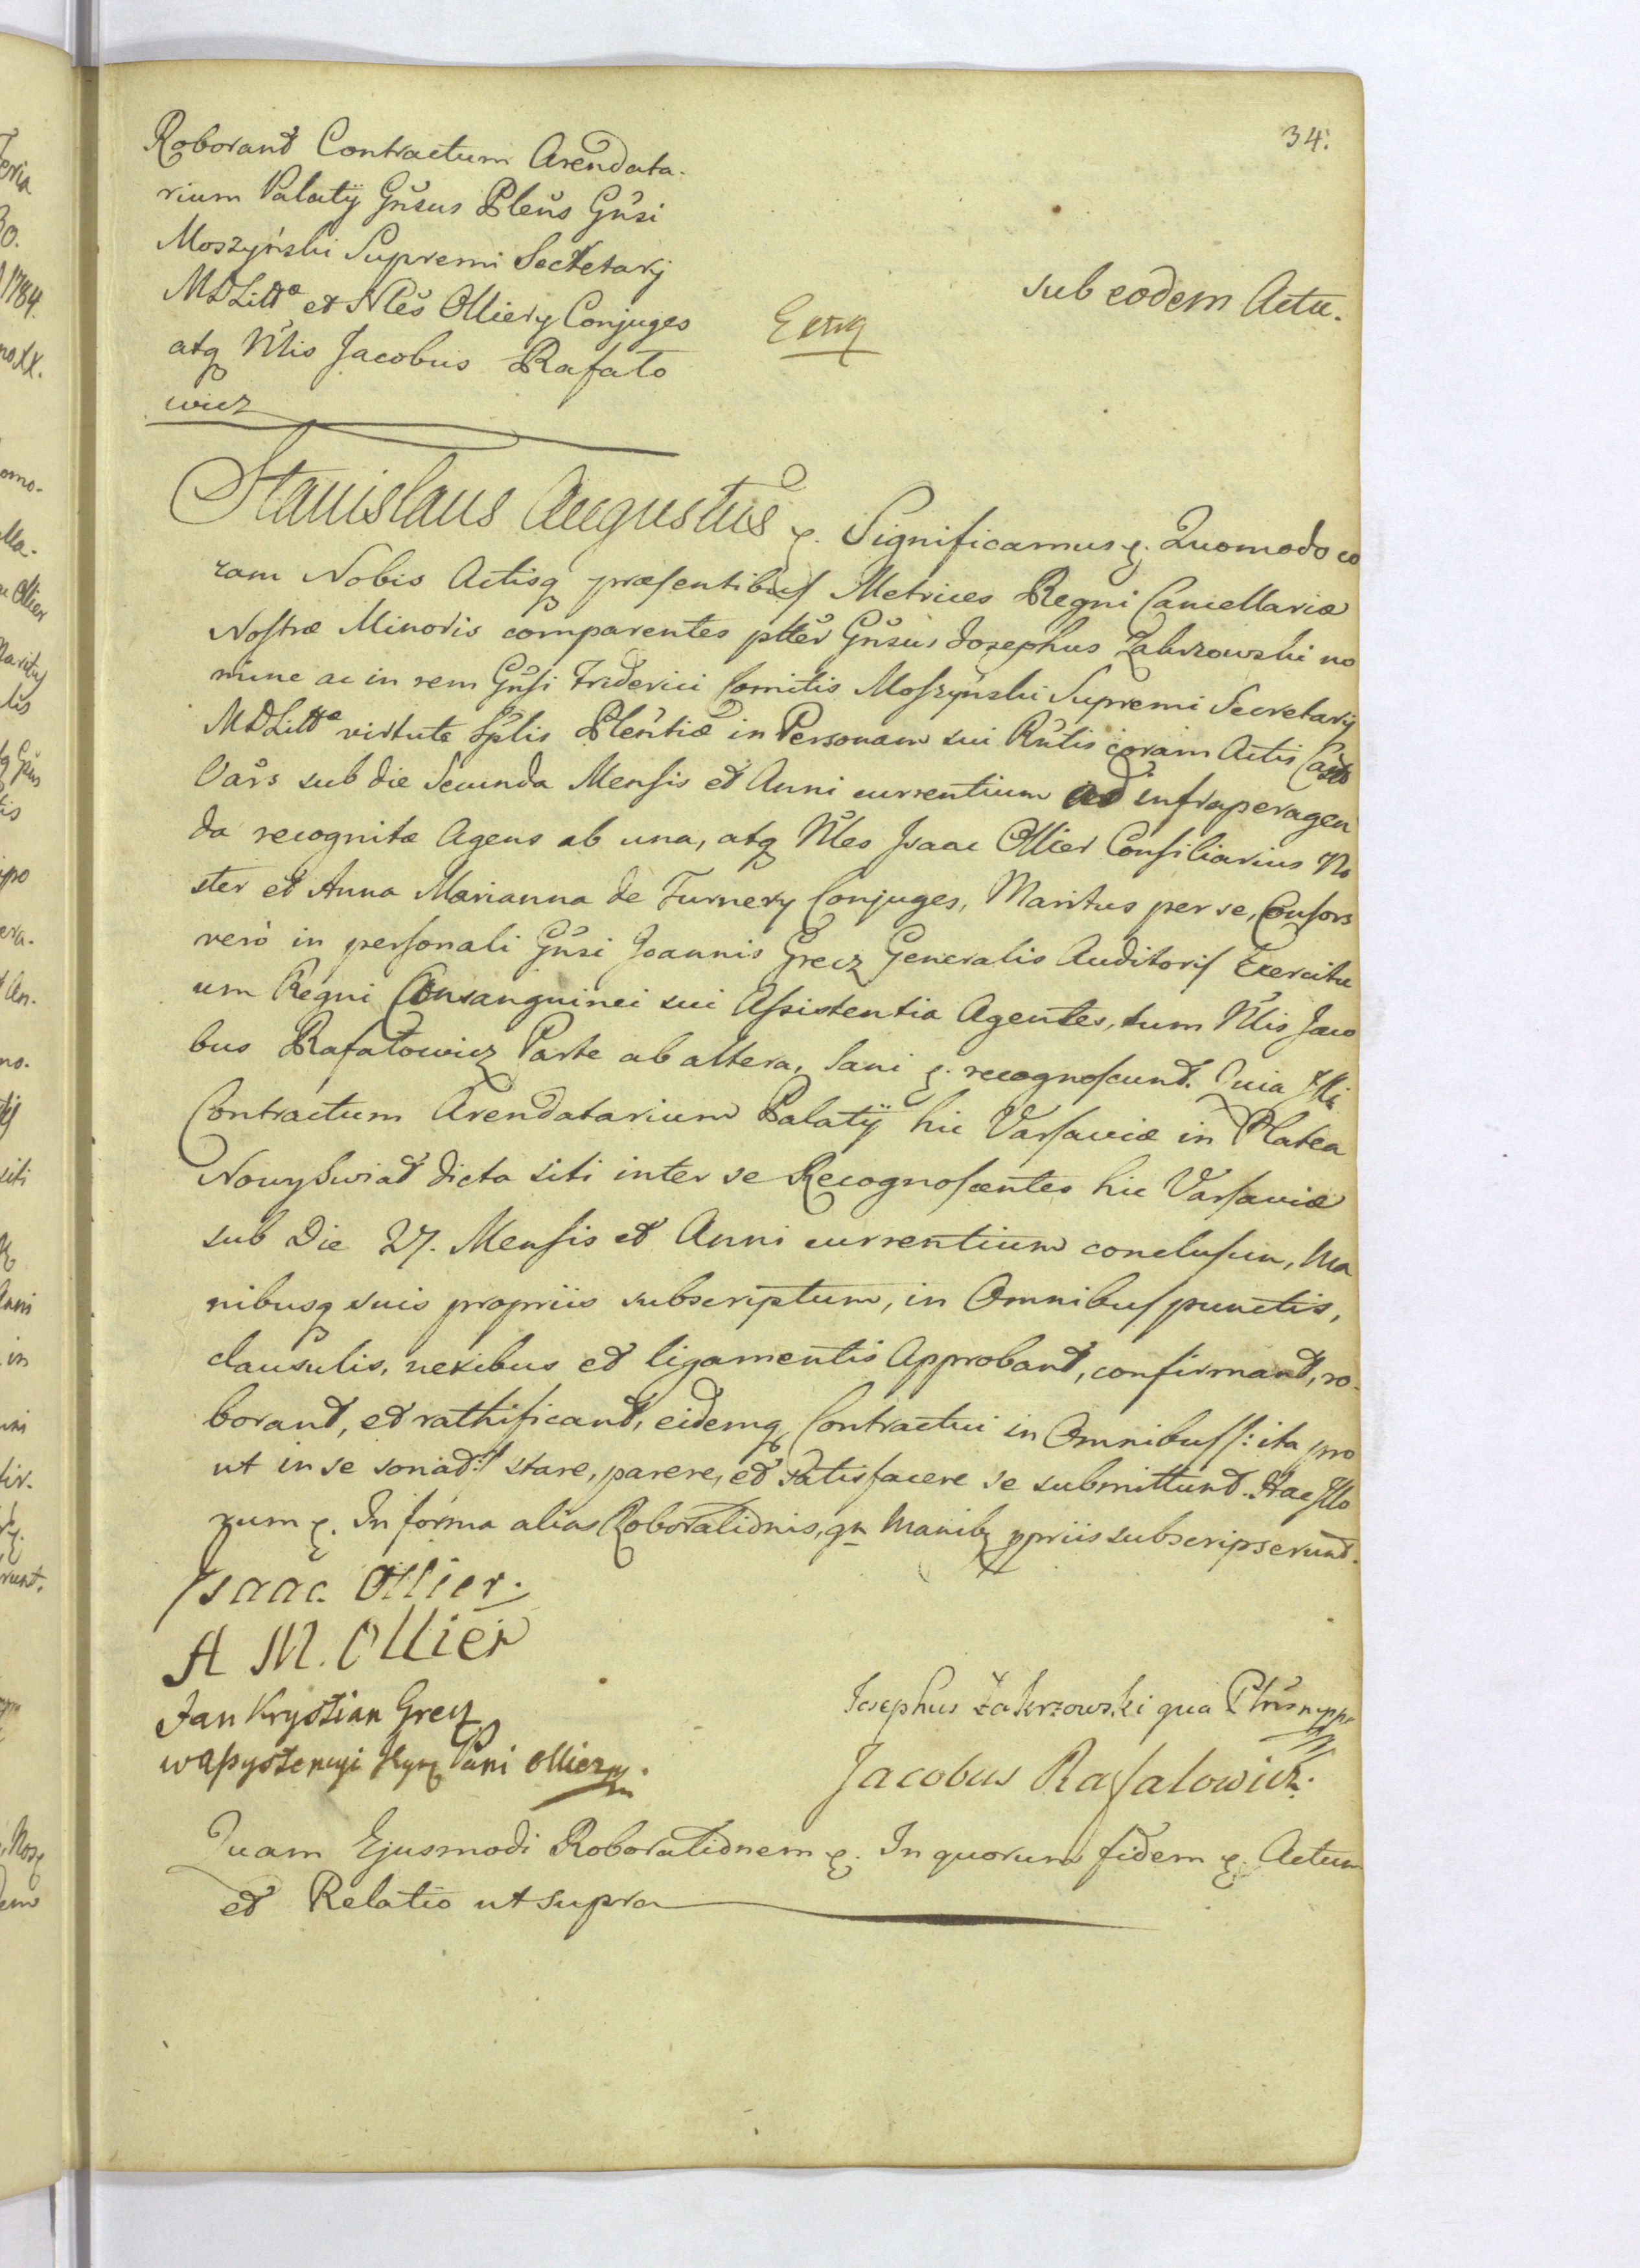 34.
Roborant Contractum Arendata-
rium Palatij Gn̄sus Plen̄s Gn̄si
Moszyński Supremi Secretarij
MDLittᵃ et N̄les Olliery Conjuges
atq N̄lis Jacobus Rafało
wicz
sub eodem Actu.
Stanislaus Augustus &. Significamus &. Quomodo co
ram Nobis Actisq præsentibus Metrices Regni Cancellariæ
Nostræ Minoris comparentes pltter Gn̄sus Josephus Zakrzowski no
mine ac in rem Gn̄si Friderici Comitis Moszyński Supremi Secretarij
MDLittᵃ virtute Sp̄lis Plen̄tiæ in Personam sui Rn̄tis coram Actis Castr
Vars̄ sub die Secunda Mensis et Anni currentium ad infraperagen
da recognitæ Agens ab una, atq N̄les Isaac Ollier Consiliarius No
ster et Anna Marianna de Turnery Conjuges, Maritus per se, Consors
verò in personali Gn̄si Joannis Grecz Generalis Auditoris Exercitu
um Regni Consanguinei sui Assistentia Agentes, tum N̄lis Jaco
bus Rafałowicz Parte ab altera, Sani &. recognoscunt. Quia Illi
Contractum Arendatarium Palatij hic Varsaviæ in Platea
NowySwiat dicta siti inter se Recognoscentes hic Varsaviæ
sub Die 27. Mensis et Anni currentium conclusum, Ma
nibusq suis propriis subscriptum, in Omnibus punctis,
clausulis, nexibus et ligamentis Approbant, confirmant, ro-
borant, et rathificant, eidemq Contractui in Omnibus /: ita pro
ut in se sonat :/ stare, parere, et satisfacere se submittunt. Hac Illo
rum &. In forma alias Roborationis, qn̄ Manibq ppriis subscripserunt.
Isaac Ollier.
A M. Ollier
Jan Krystian Grecz
w assystencyi Pani Olliery.
Josephus Zakrzowski qua Pln̄s mppa
Jacobus Rafalowicz.
Quam Ejusmodi Roborationem &. In quorum fidem &. Actum
et Relatio ut supra